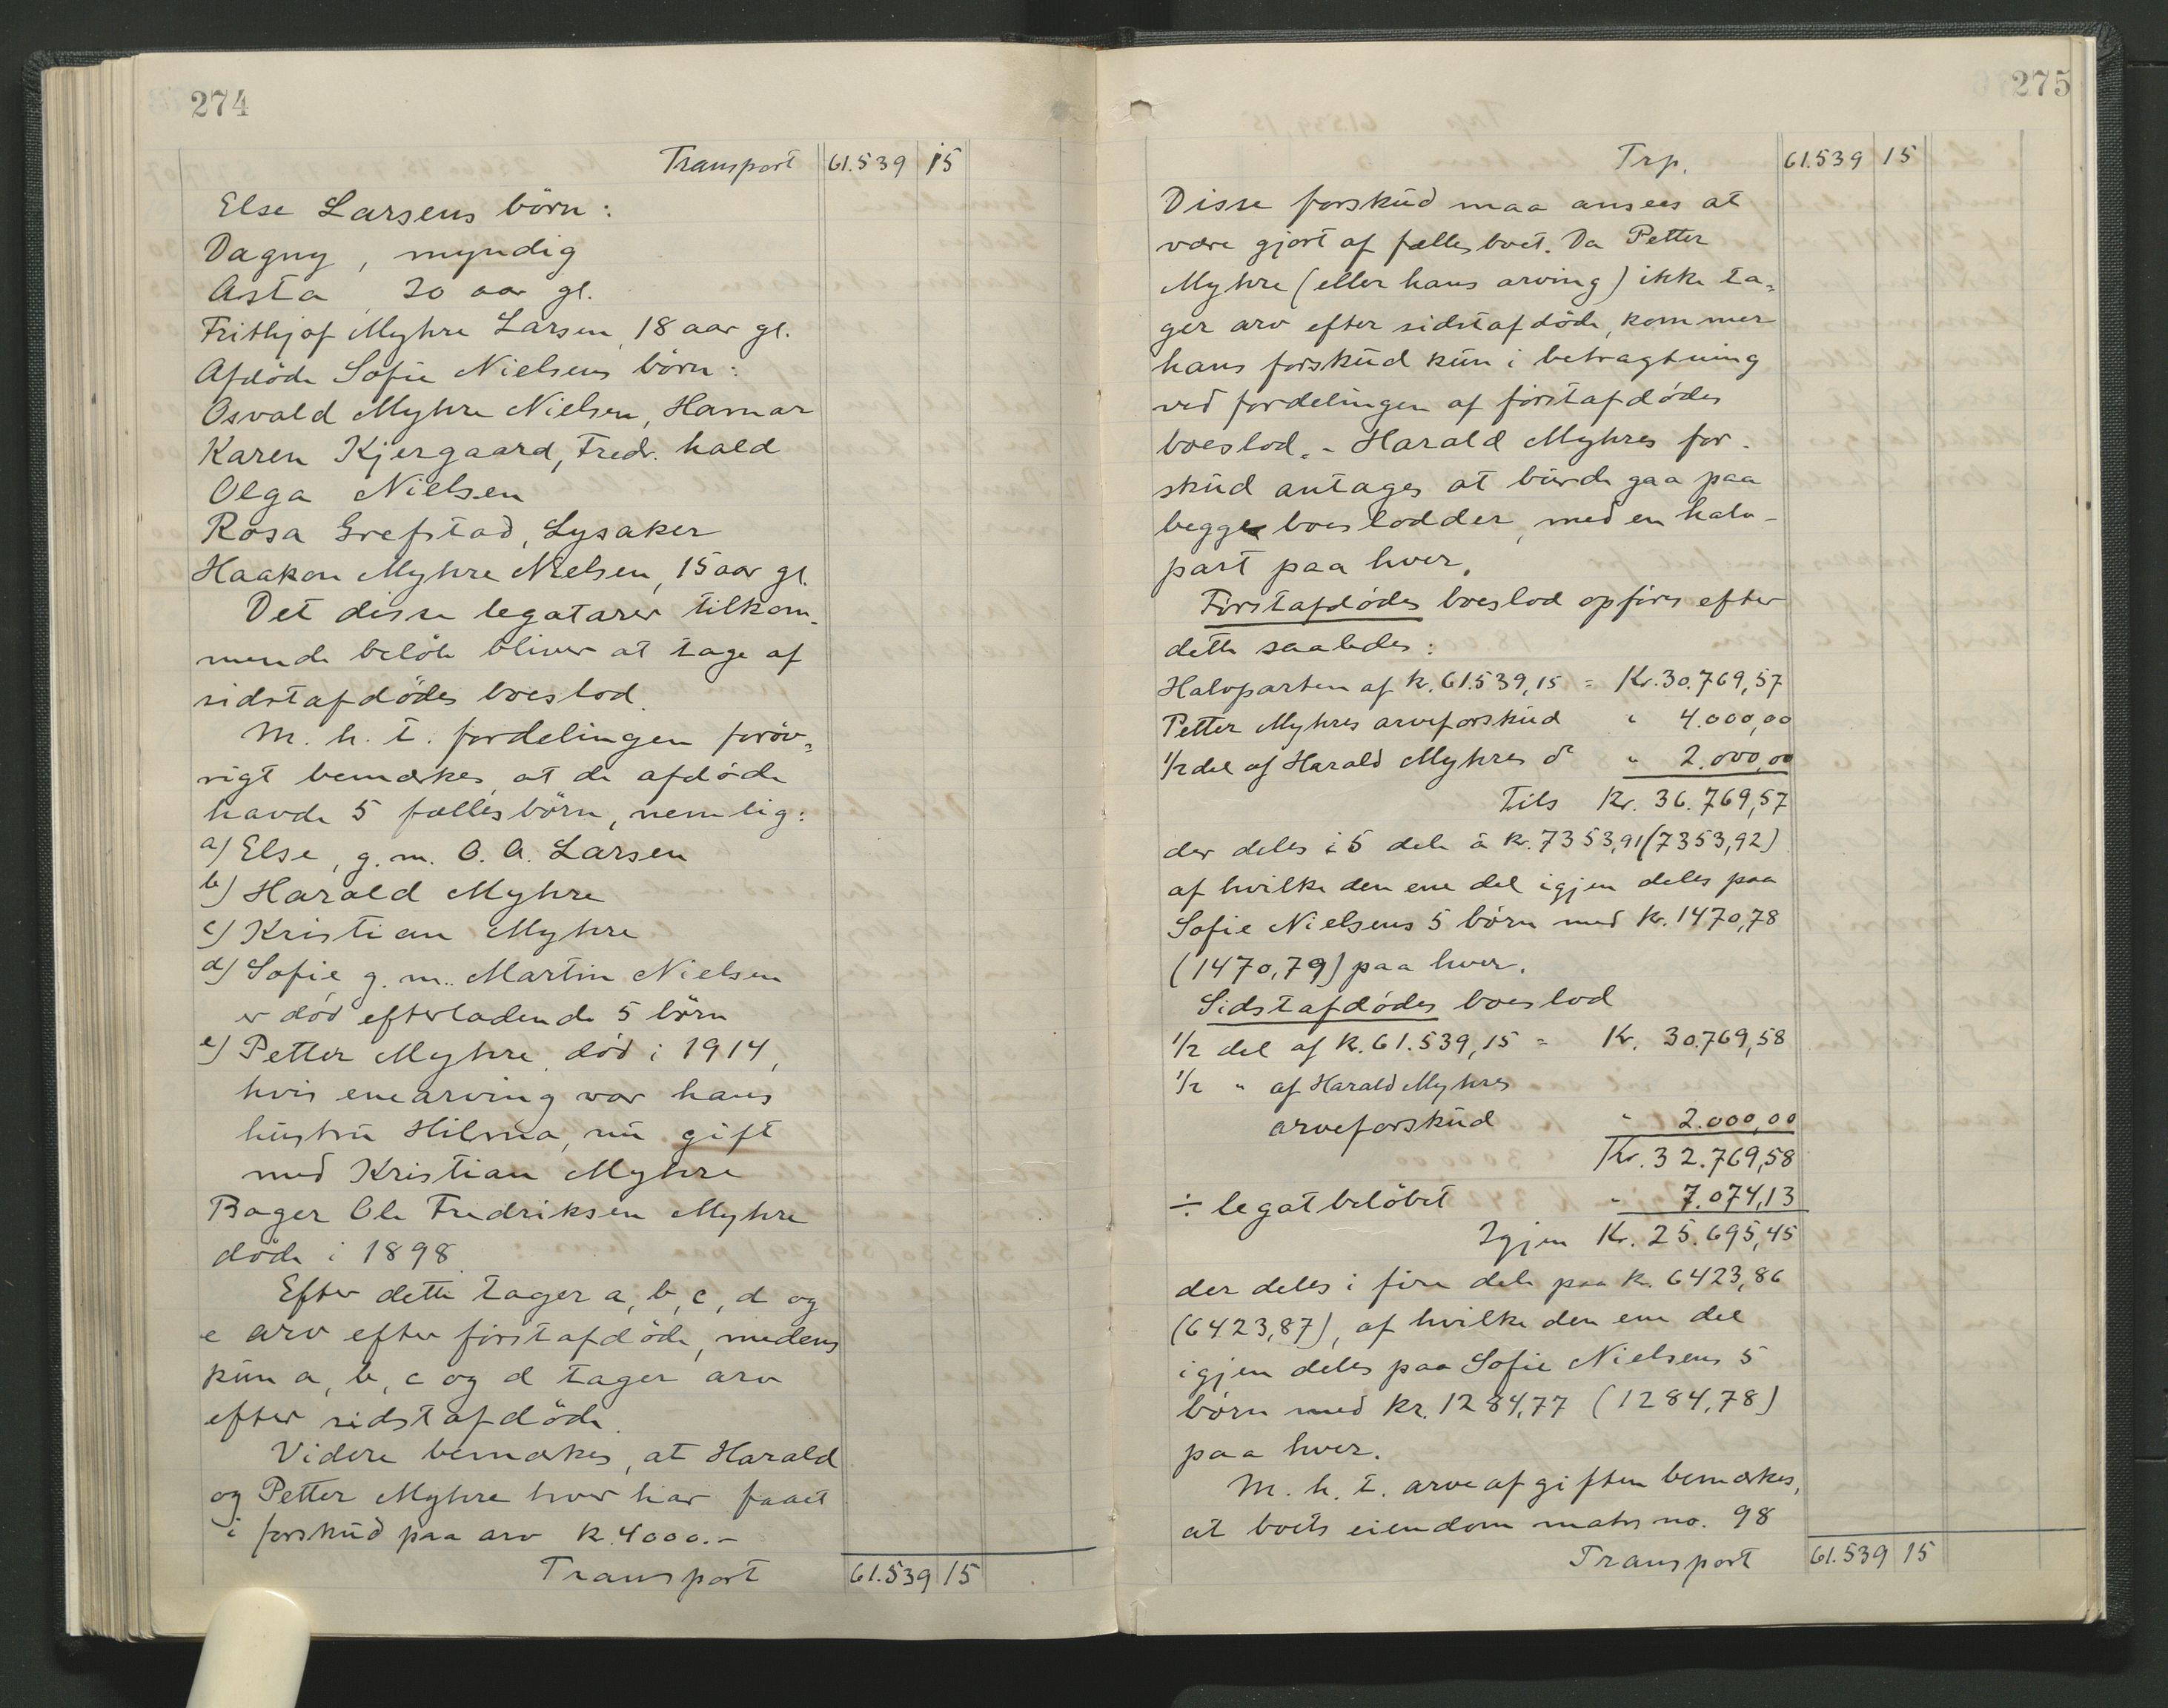 274
Transport 61.539 15
Else Larsens börn:
Dagny, myndig
Asta, 20 aar gl.
Frithjof Myhre Larsen, 18 aar gl.
Afdöde Sofie Nielsens börn:
Osvald Myhre Nielsen, Hamar
Karen Kjergaard, Fredr. hald
Olga Nielsen
Rosa Grefstad, Lysaker
Haakon Myhre Nielsen, 15 aar gl.
Det disse legatarer tilkom-
mende belöb bliver at tage af
sidstafdödes boeslod.
M. h. t. fordelingen foröv-
rigt bemærkes, at de afdöde
havde 5 fællesbörn, nemlig:
a) Else, g. m. O. A. Larsen
b) Harald Myhre
c) Kristian Myhre
d) Sofie g. m. Martin Nielsen
er död efterladende 5 börn
e) Petter Myhre, död i 1914,
hvis enearving var hans
hustru Hilma, nu gift
med Kristian Myhre
Bager Ole Fredriksen Myhre
döde i 1898.
Efter dette tager a, b, c, d og
e arv efter förstafdöde, medens
kun a, b, c og d tager arv
efter sidstafdöde.
Videre bemærkes, at Harald
og Petter Myhre hver har faaet
i forskud paa arv k. 4000.-
Transport 61.539 15
275
Trp. 61.539 15
Disse forskud maa ansees at
være gjort af fællesboet. Da Petter
Myhre (eller hans arving) ikke ta-
ger arv efter sidstafdöde, kommer
hans forskud kun i betragtning
ved fordelingen af förstafdödes
boeslod. - Harald Myhres for-
skud antages at burde gaa paa
begge boeslodder, med en halv-
part paa hver.
Förstafdödes boeslod opföres efter
dette saaledes:
Halvparten af k. 61.539,15 = Kr. 30.769,57
Petter Myhres arveforskud " 4.000,00
1/2 del af Harald Myhres do " 2.000,00
Tils Kr. 36.769,57
der deles i 5 dele à kr. 7353,91 (7353,92)
af hvilke den ene del igjen deles paa
Sofie Nielsens 5 börn med kr. 1470,78
(1470,79) paa hver.
Sidstafdödes boeslod
1/2 del af k. 61.539,15 = Kr. 30.769,58
1/2 " af Harald Myhres
arveforskud " 2.000,00
Kr. 32.769,58
÷ legatbelöbet " 7.074,13
Igjen Kr. 25.695,45
der deles i fire dele paa k. 6423,86
(6423,87), af hvilke den ene del
igjen deles paa Sofie Nielsens 5
börn med kr. 1284,77 (1284,78)
paa hver.
M. h. t. arveafgiften bemærkes,
at boets eiendom matr no. 98
Transport 61.539 15